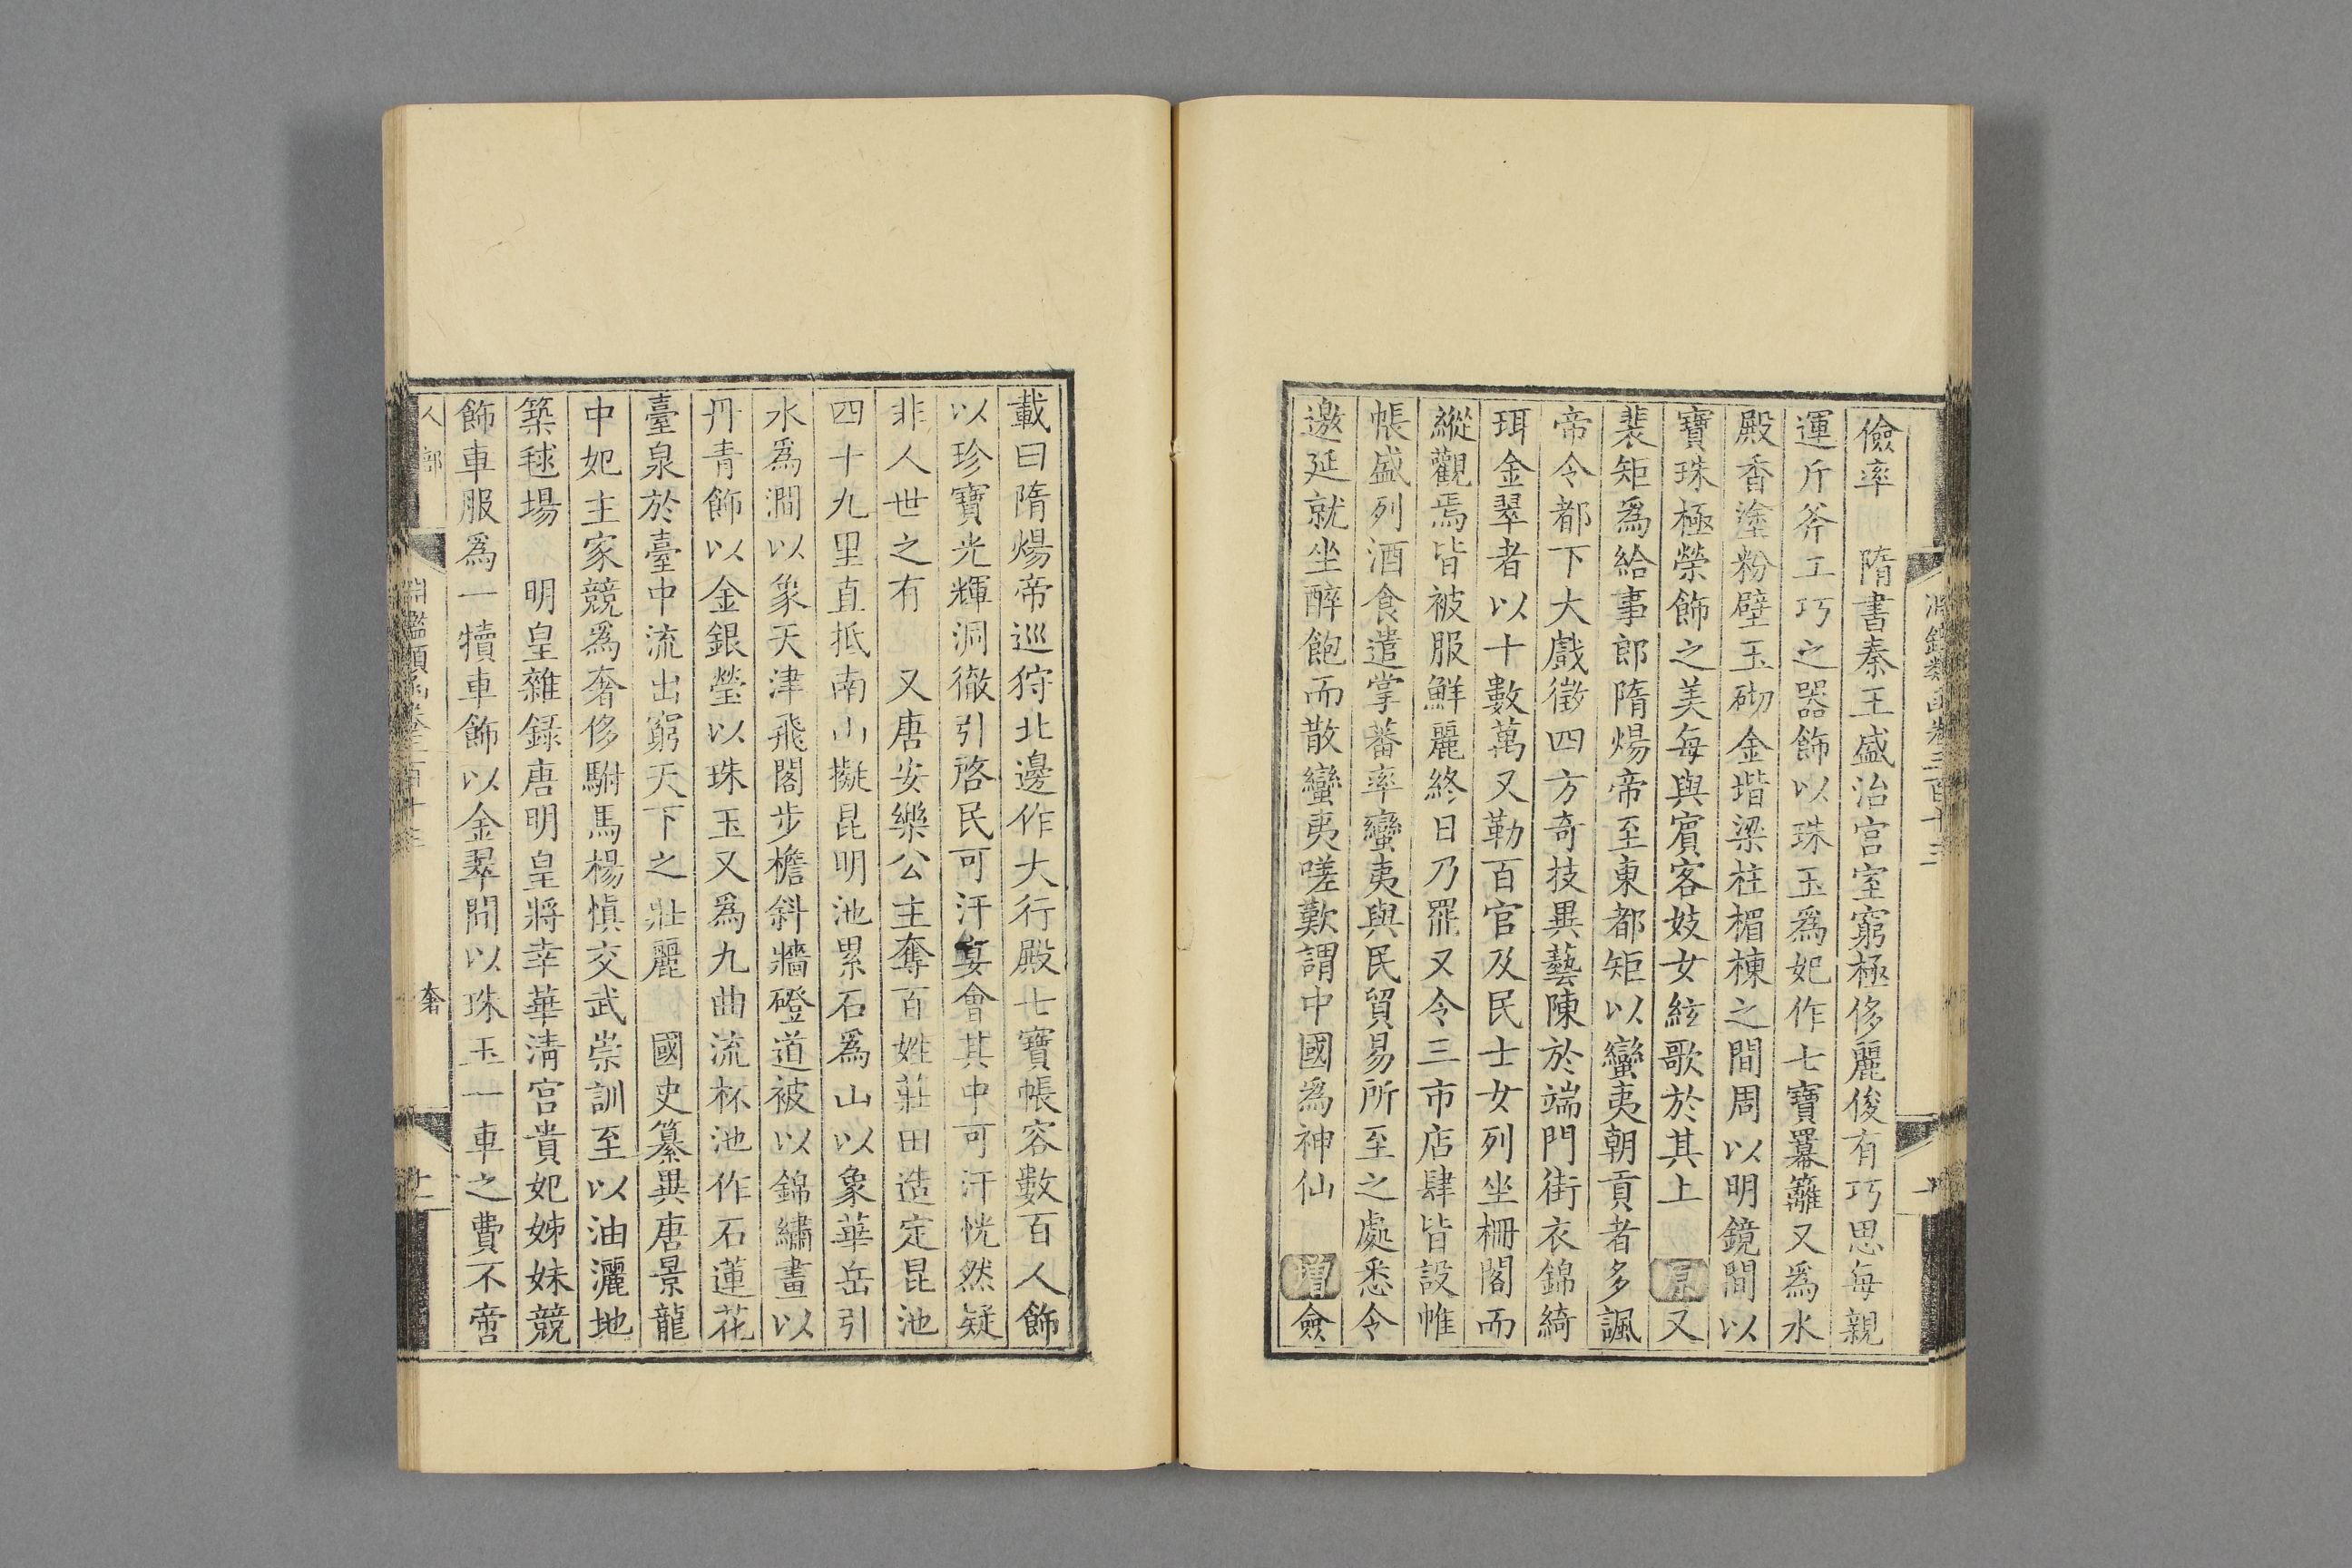 儉率　隋書秦王盛治宮室窮極侈麗俊有巧思每親
運斤斧工巧之器飾以珠玉爲妃作七寶羃籬又爲水
殿香塗粉壁玉砌金堦梁柱楣棟之間周以明鏡間以
寶珠極榮飾之美每與賓客妓女絃歌於其上　原又
裴矩爲給事郎隋煬帝至東都矩以蠻夷朝貢者多諷
帝令都下大戲徵四方奇技異藝陳於端門街衣錦綺
珥金翠者以十數萬又勒百官及民士女列坐柵閣而
縱觀焉皆被服鮮麗終日乃罷又令三市店肆皆設帷
帳盛列酒食遣掌蕃率蠻夷與民貿易所至之處悉令
邀延就坐醉飽而散蠻夷嗟歎謂中國爲神仙　增僉
載曰隋煬帝巡狩北邊作大行殿七寶帳容數百人飾
以珍寶光輝洞徹引啓民可汗宴會其中可汗恍然疑
非人世之有　又唐安樂公主奪百姓莊田造定昆池
四十九里直抵南山擬昆明池累石爲山以象華岳引
水爲澗以象天津飛閣步檐斜牆磴道被以錦繡畫以
丹青飾以金銀瑩以珠玉又爲九曲流杯池作石蓮花
臺泉於臺中流出窮天下之壯麗　國史纂異唐景龍
中妃主家競爲奢侈駙馬楊慎交武崇訓至以油灑地
築毬場　明皇雜錄唐明皇將幸華淸宮貴妃姊妹競
飾車服爲一犢車飾以金翠間以珠玉一車之費不啻
人部　淵鑑類函卷三百十三　奢　十一